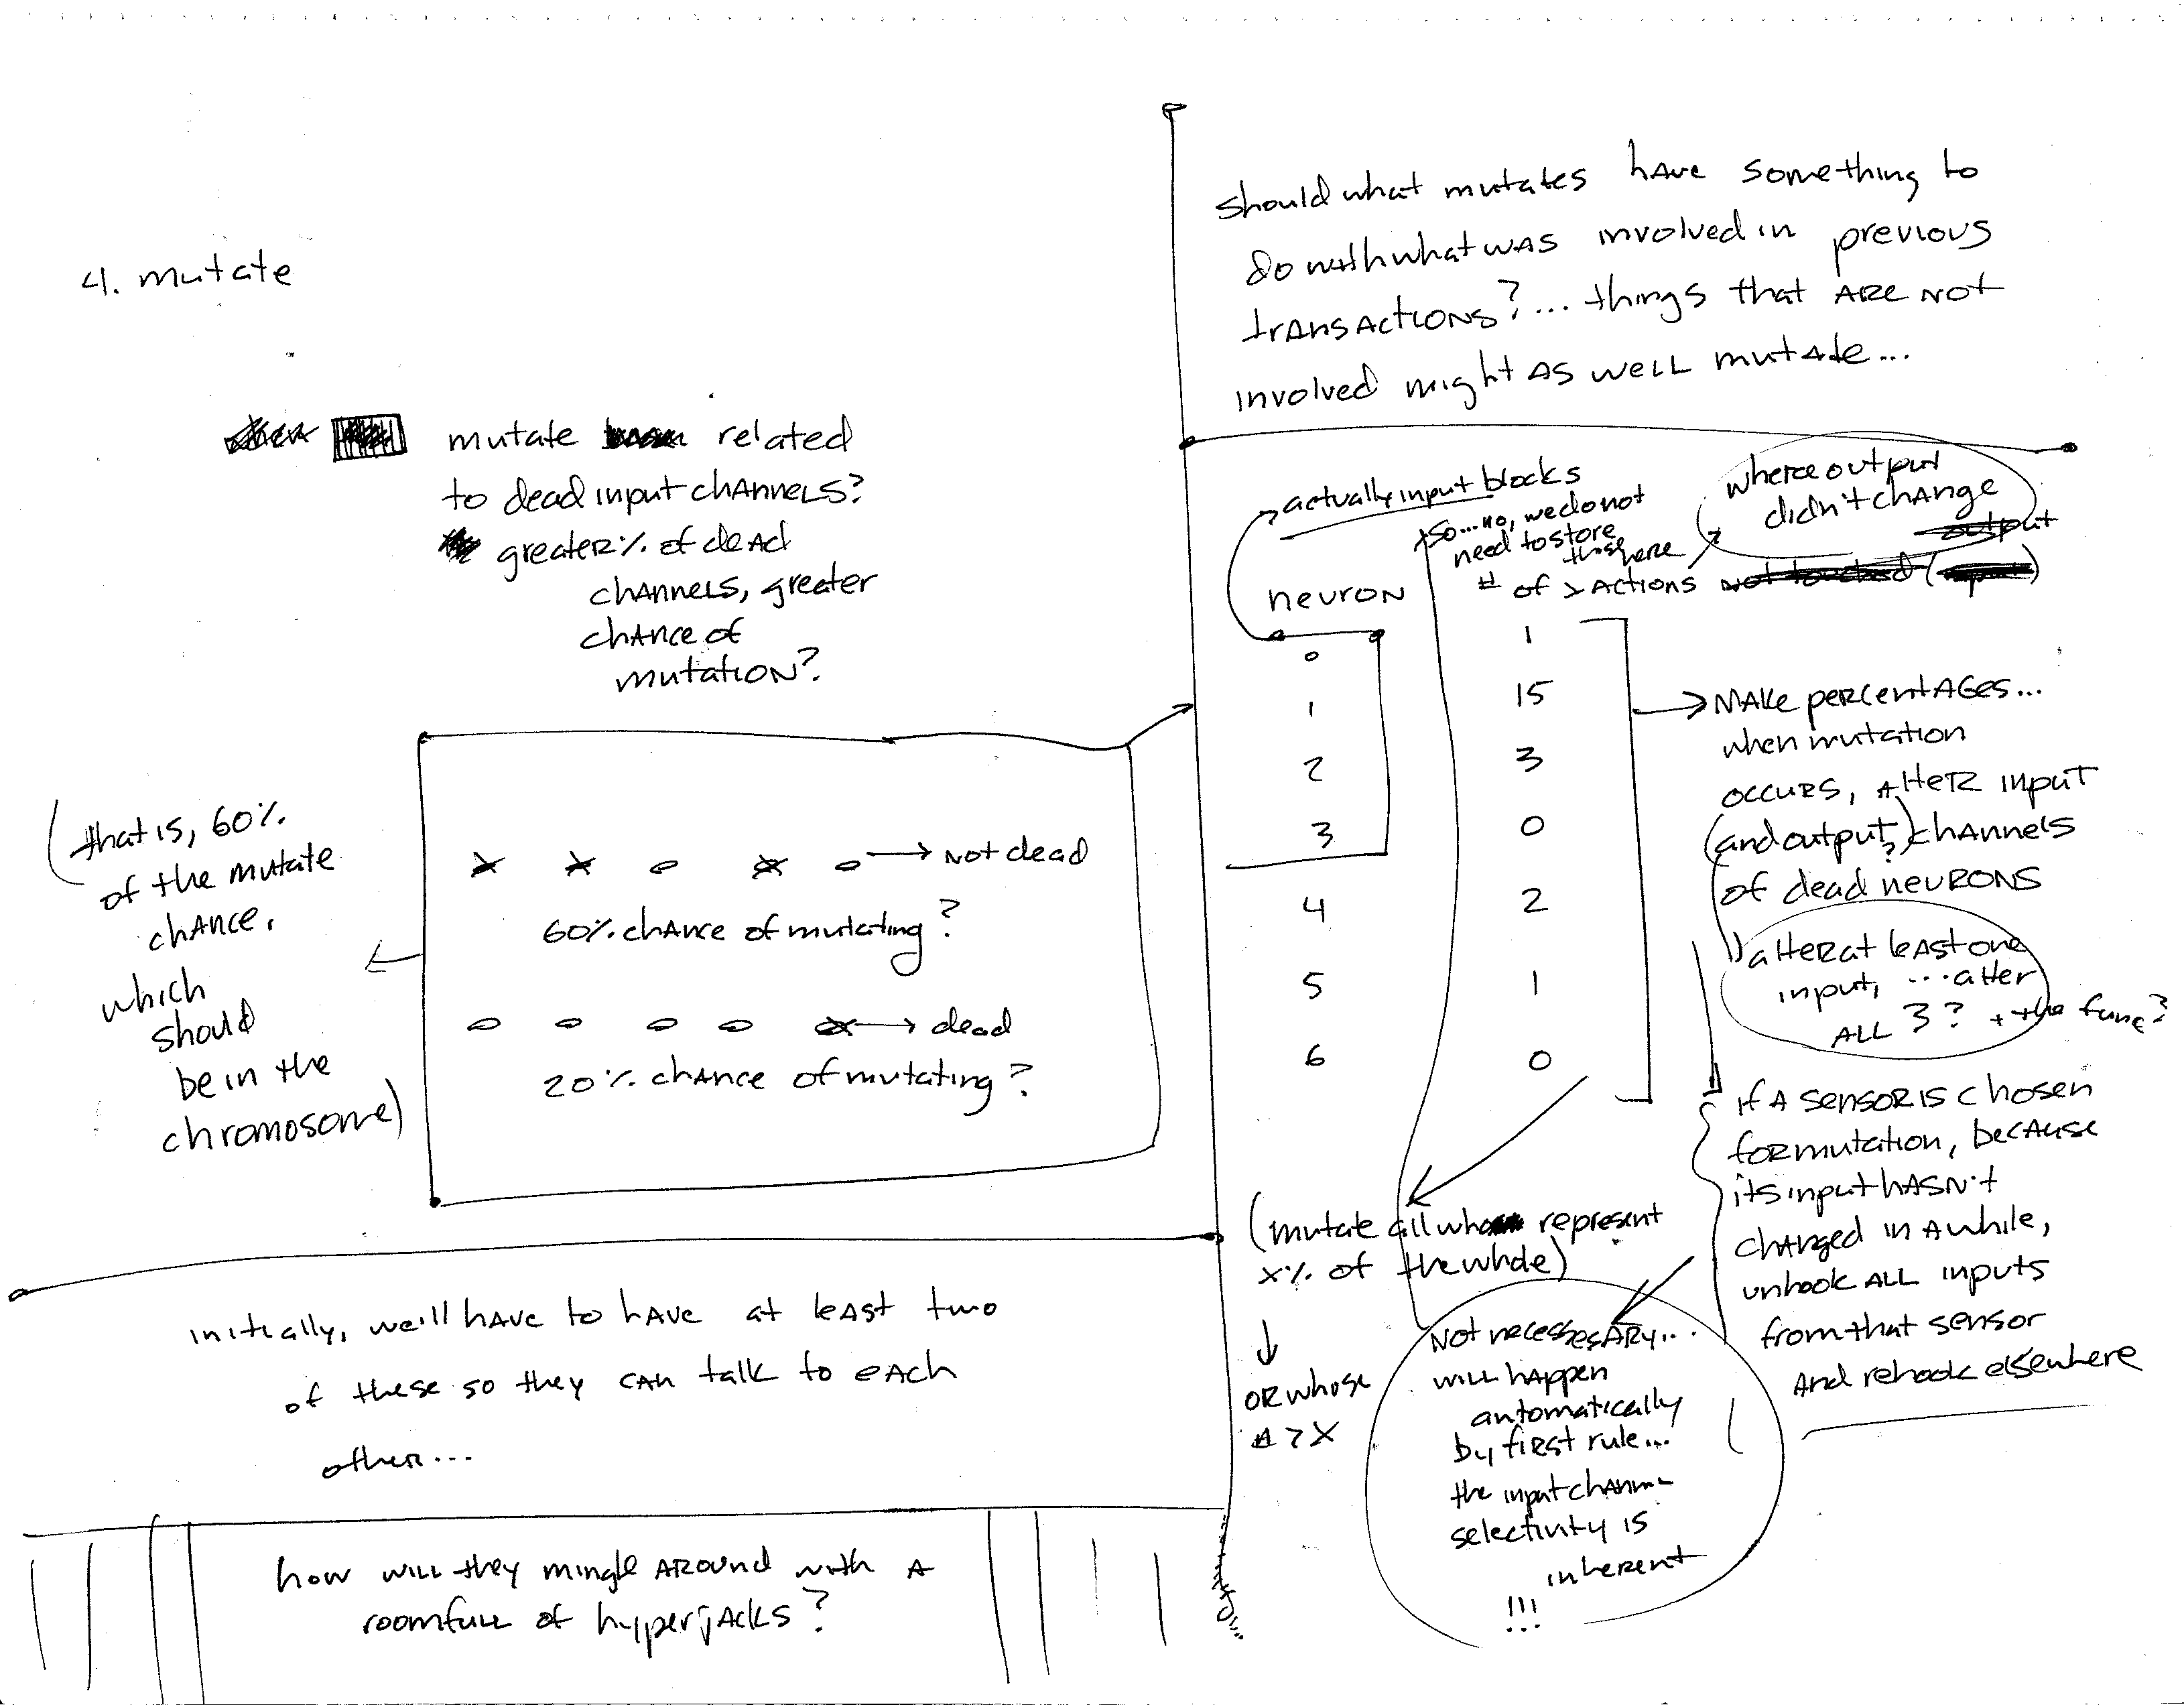 4. mutate
mutate related
to dead input channels?
greater % of dead
channels, greater
chance of
mutation?
(that is, 60%
of the mutate
chance,
which
should
be in the
chromosome)
x x o x o → not dead
60% chance of mutating?
o o o o x → dead
20% chance of mutating?
initially, we'll have to have at least two
of these so they can talk to each
other...
how will they mingle around with a
roomfull of hyperjacks?
should what mutates have something to
do with what was involved in previous
transactions?... things that are not
involved might as well mutate...
actually input blocks
so... no, we do not
need to store
those here
where output
didn't change
output
neuron # of xactions not touched
0 1
1 15
2 3
3 0
4 2
5 1
6 0
make percentages...
when mutation
occurs, alter input
(and output?) channels
of dead neurons
alter at least one
input, ...alter
all 3? + the func?
if a sensor is chosen
for mutation, because
its input hasn't
changed in a while,
unhook all inputs
from that sensor
and rehook elsewhere
(mutate all who represent
x% of the whole)
↓
or whose
> x
not necessary...
will happen
automatically
by first rule...
the input channel
selectivity is
inherent
!!!